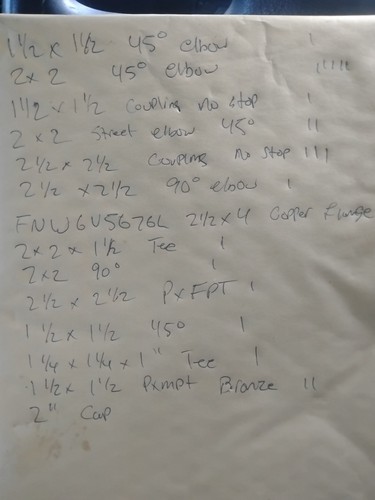 1 1/2 x 1 1/2 45° elbow I
2 x 2 45° elbow IIIII
1 1/2 x 1 1/2 Coupling no stop I
2 x 2 Street elbow 45° II
2 1/2 x 2 1/2 Coupling no stop III
2 1/2 x 2 1/2 90° elbow I
FNWGU5676L 2 1/2 x 4 Copper flange
2 x 2 x 1 1/2 Tee I
2 x 2 90° I
2 1/2 x 2 1/2 PxFPT I
1 1/2 x 1 1/2 45° I
1 1/4 x 1 1/4 x 1" Tee I
1 1/2 x 1 1/2 Pxmpt Bronze II
2" Cap